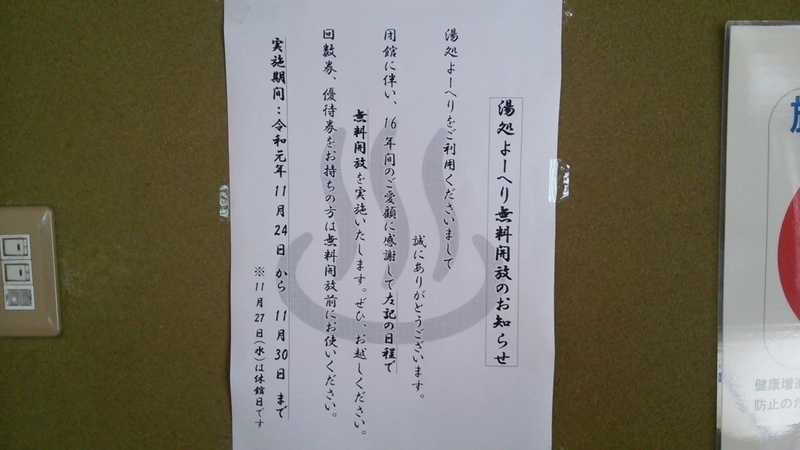 湯処よーへり無料開放のお知らせ
湯処よーへりをご利用くださいまして
誠にありがとうございます。
閉館に伴い、16年間のご愛顧に感謝して左記の日程で
無料開放を実施いたします。ぜひ、お越しください。
回数券、優待券をお持ちの方は無料開放前にお使いください。
実施期間：令和元年11月24日から 11月30日まで
※11月27日(水)は休館日です
健康増進
防止のた